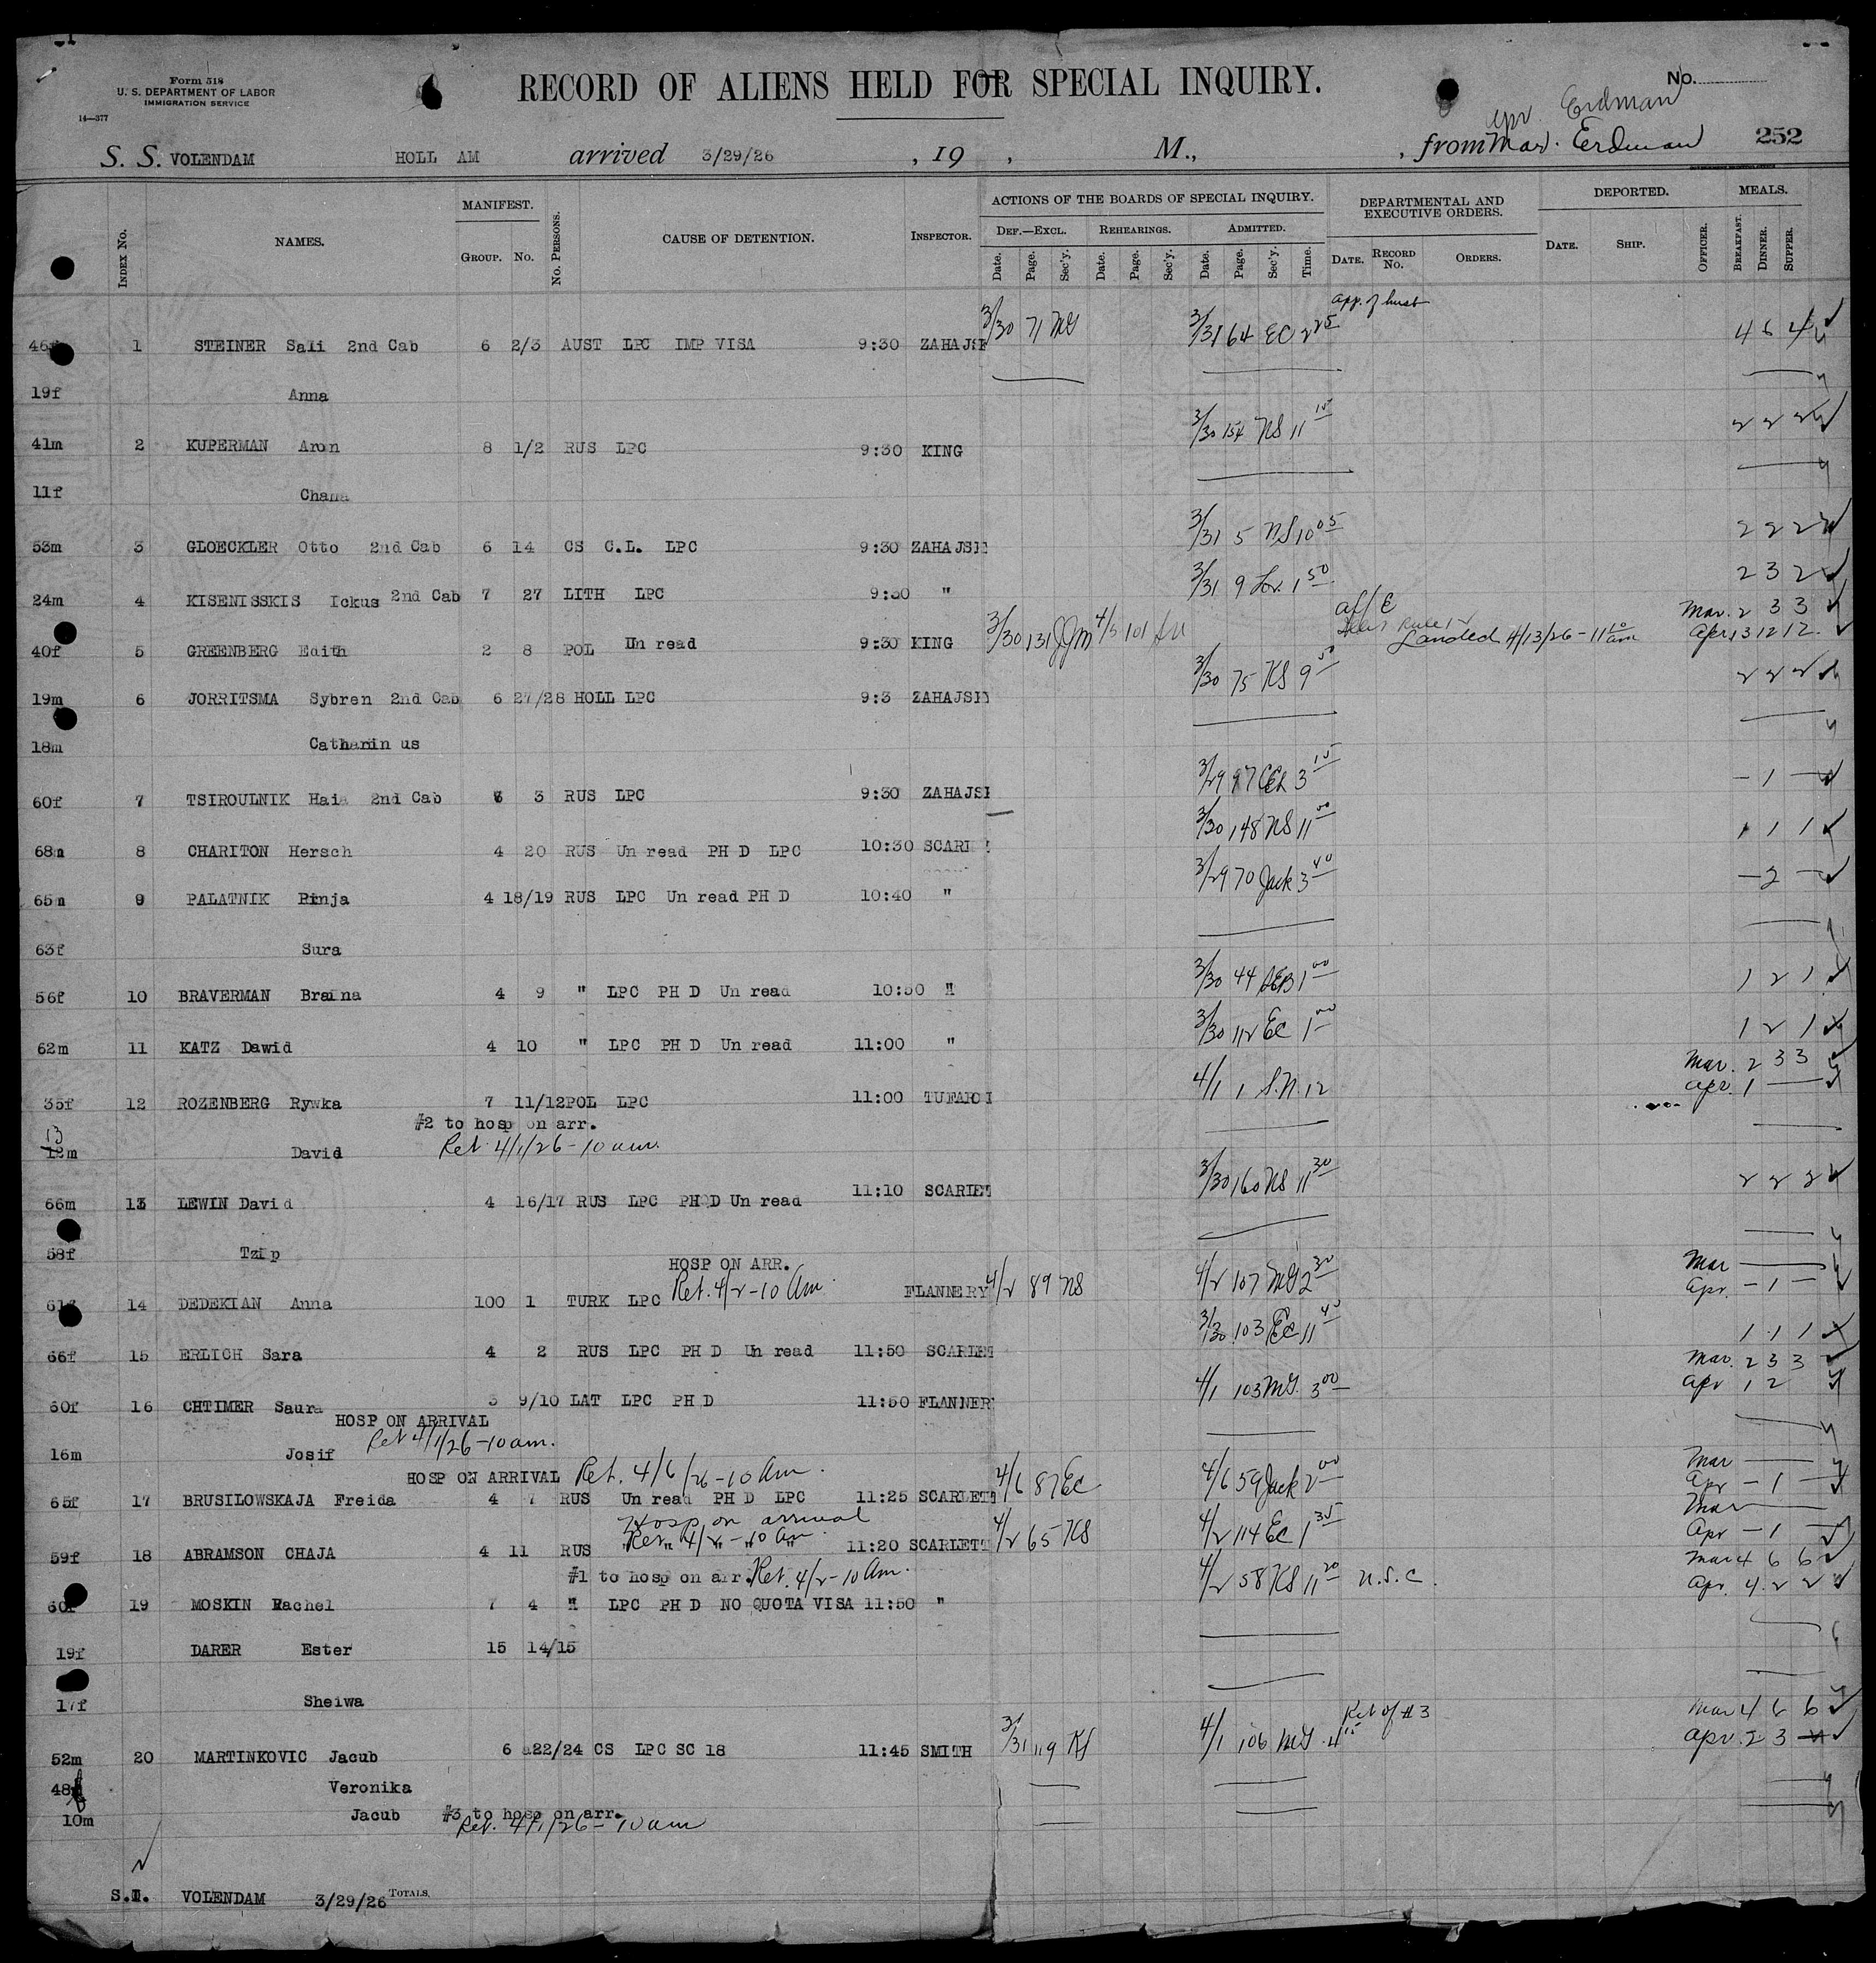 Form 518
U. S. DEPARTMENT OF LABOR
IMMIGRATION SERVICE
14—377
RECORD OF ALIENS HELD FOR SPECIAL INQUIRY.
No.
Apr. Erdman
S. S. VOLENDAM HOLL AM arrived 3/29/26 , 19 , M., , from Mar. Erdman 252
INDEX No. NAMES. MANIFEST. GROUP. No. No. PERSONS. CAUSE OF DETENTION. INSPECTOR. ACTIONS OF THE BOARDS OF SPECIAL INQUIRY. DEF.—EXCL. Date. Page. Sec'y. REHEARINGS. Date. Page. Sec'y. ADMITTED. Date. Page. Sec'y. Time. DEPARTMENTAL AND EXECUTIVE ORDERS. DATE. RECORD No. ORDERS. DEPORTED. DATE. SHIP. OFFICER. MEALS. BREAKFAST. DINNER. SUPPER.
app. of husb
1 STEINER Sali 2nd Cab 6 2/3 AUST LPC IMP VISA 9:30 3/30 71 MG 3/31 64 EC 2 25 4 6 4
19f Anna
41m 2 KUPERMAN Aron 8 1/2 RUS LPC 9:30 KING 3/30 154 NS 11 10 2 2 2
11f Chana
53m 3 GLOECKLER Otto 2nd Cab 6 14 CS C.L. LPC 9:30 ZAHAJSI 3/31 5 NS 10 05 2 2 2
24m 4 KISENISSKIS Ickus 2nd Cab 7 27 LITH LPC 9:30 " 3/31 9 1 50 2 3 2
40f 5 GREENBERG Edith 2 8 POL Un read 9:30 KING 3/30 131 JJM 4/5 101 Landed 4/13/26 - 11 10 am Mar. 2 3 3
Apr 13 12 12
19m 6 JORRITSMA Sybren 2nd Cab 6 27/28 HOLL LPC 9:3 ZAHAJSI 3/30 75 KS 9 50 2 2 2
18m Catharin us
60f 7 TSIROULNIK Haia 2nd Cab 3 RUS LPC 9:30 ZAHAJSI 3/29 97 3 15 - 1 -
68m 8 CHARITON Hersch 4 20 RUS Un read PH D LPC 10:30 SCARL 3/30 148 NS 11 00 1 1 1
65m 9 PALATNIK Pinja 4 18/19 RUS LPC Un read PH D 10:40 " 3/29 70 Jack 3 40 - 2 -
63f Sura
56f 10 BRAVERMAN Braina 4 9 " LPC PH D Un read 10:50 " 3/30 44 1 00 1 2 1
62m 11 KATZ Dawid 4 10 " LPC PH D Un read 11:00 " 3/30 112 EC 1 00 1 2 1
35f 12 ROZENBERG Rywka 7 11/12 POL LPC 11:00 TUFARO 4/1 1 S.N. 12 Mar. 2 3 3
Apr. 1
#2 to hosp on arr.
13
12m David Ret 4/1/26 - 10 am.
66m 13 LEWIN David 4 16/17 RUS LPC PH D Un read 11:10 SCARLET 3/30 160 NS 11 30 2 2 2
58f Tzip
HOSP ON ARR.
14 DEDEKIAN Anna 100 1 TURK LPC Ret. 4/2 - 10 Am. FLANNERY 4/2 89 NS 4/2 107 MG 2 30 Mar
Apr. - 1 -
66f 15 ERLICH Sara 4 2 RUS LPC PH D Un read 11:50 SCARLET 3/30 103 EC 11 40 1 1 1
60f 16 CHTIMER Saura 9/10 LAT LPC PH D 11:50 FLANNER 4/1 103 MG. 3 00 Mar. 2 3 3
Apr 1 2
HOSP ON ARRIVAL
16m Josif Ret 4/1/26 - 10 am.
HOSP ON ARRIVAL Ret. 4/6/26 - 10 Am.
65f 17 BRUSILOWSKAJA Freida 4 7 RUS Un read PH D LPC 11:25 SCARLETT 4/6 87 EC 4/6 59 Jack 2 00 Mar
Apr - 1 -
Hosp on arrival
59f 18 ABRAMSON CHAJA 4 11 RUS Ret. 4/2 - 10 am 11:20 SCARLETT 4/2 65 KS 4/2 114 EC 1 35 Mar
Apr - 1 -
#1 to hosp on arr. Ret. 4/2 - 10 Am.
19 MOSKIN Rachel 7 4 " LPC PH D NO QUOTA VISA 11:50 " 4/2 58 KS 11 20 n.s.c. Mar 4 6 6
Apr. 4 2 2
19f DARER Ester 15 14/15
17f Sheiwa
Ret of #3
52m 20 MARTINKOVIC Jacub 6 22/24 CS LPC SC 18 11:45 SMITH 3/31 119 KS 4/1 106 MG. 4 15 Mar 4 6 6
Apr. 2 3
48f Veronika
10m Jacub #3 to hosp on arr.
Ret. 4/1/26 - 10 am
S.I. VOLENDAM 3/29/26 TOTALS.